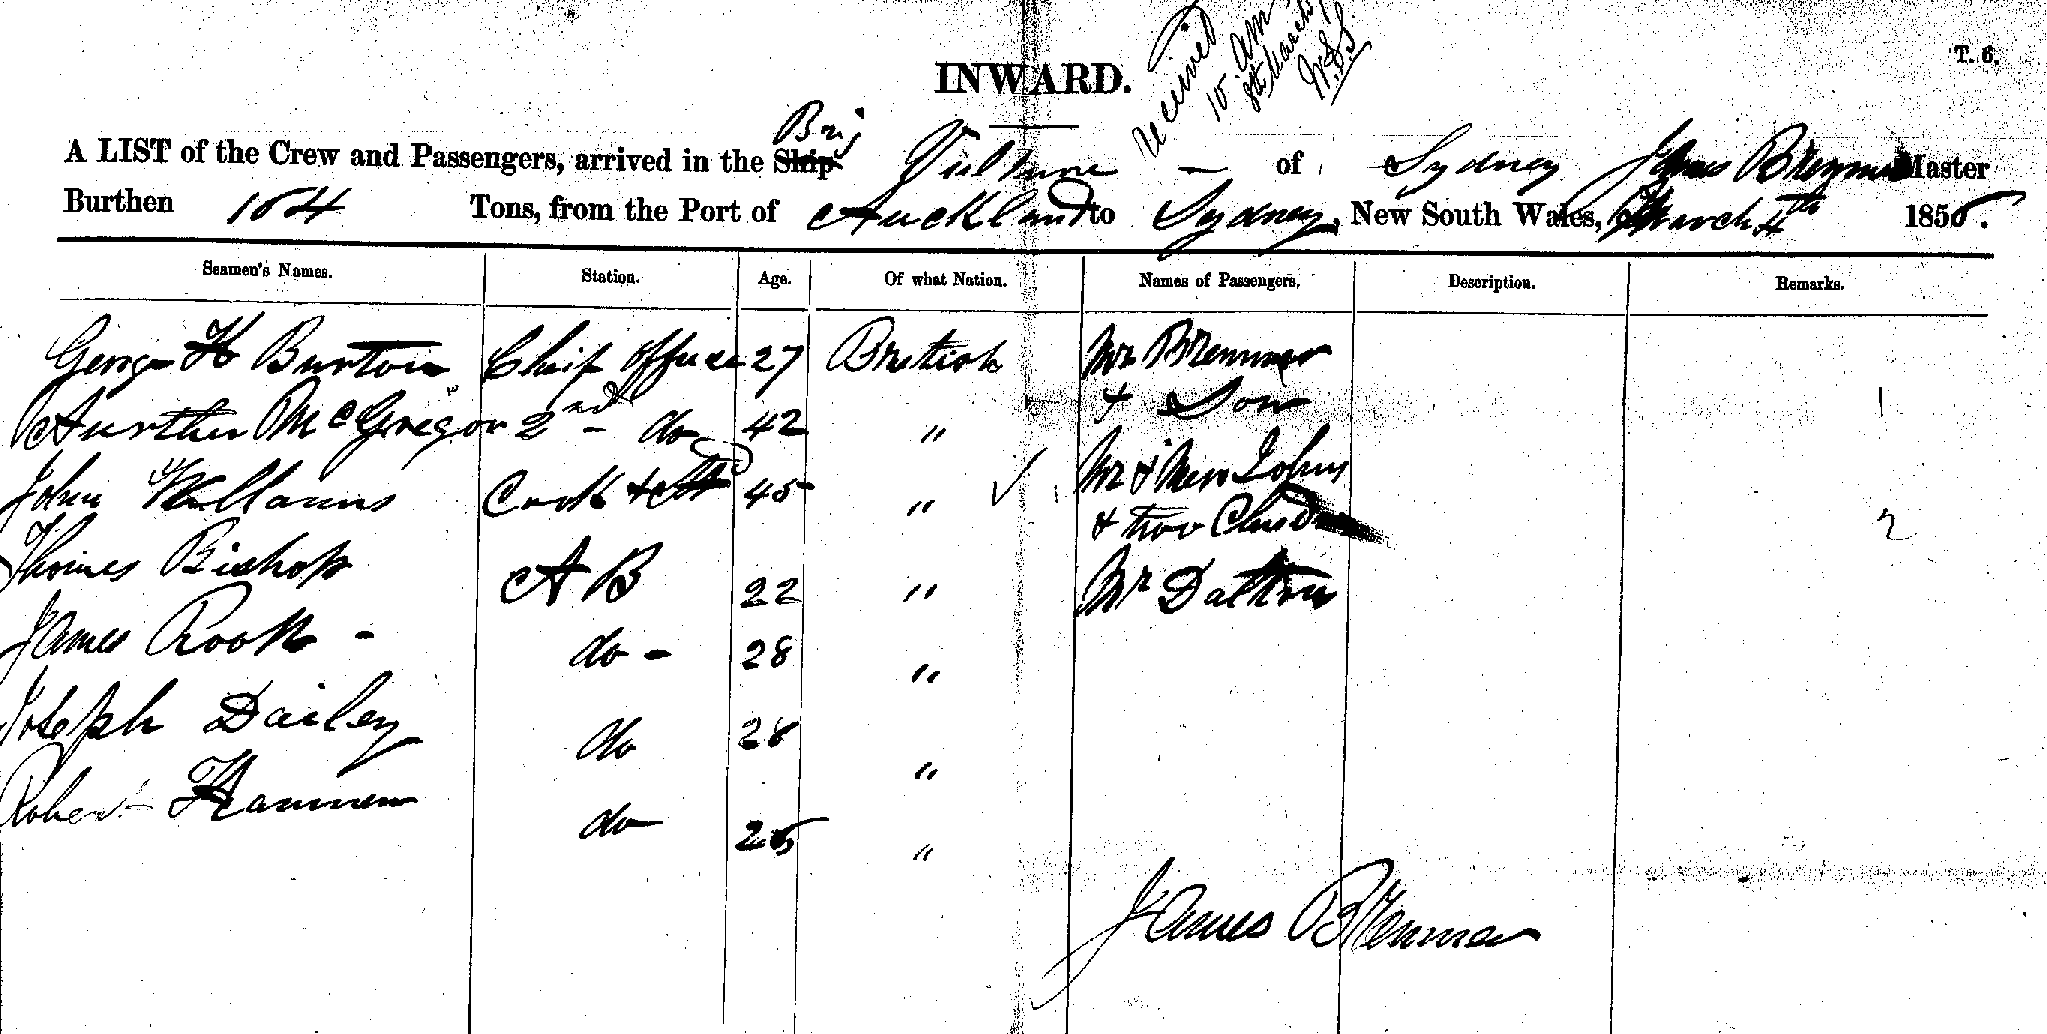 Received
10 AM
8th March
INWARD.
T. 6.
Brig
A LIST of the Crew and Passengers, arrived in the Ship Vulture — of Sydney James Brennan Master
Burthen 164 Tons, from the Port of Auckland to Sydney, New South Wales, March 4th 1856.
Seamen's Names. Station. Age. Of what Nation. Names of Passengers. Description. Remarks.
George H Burton Chief Officer 27 British Mrs
& Son 1
Aurther McGregor 2nd - do 42 "
John Williams Cook & 45 " Mr & Mrs Johns
& two 2
Thomas Bishop A B 22 " Mr Dalton
James Rook - do - 28 "
Joseph Dailey do 28 "
Robert do "
James